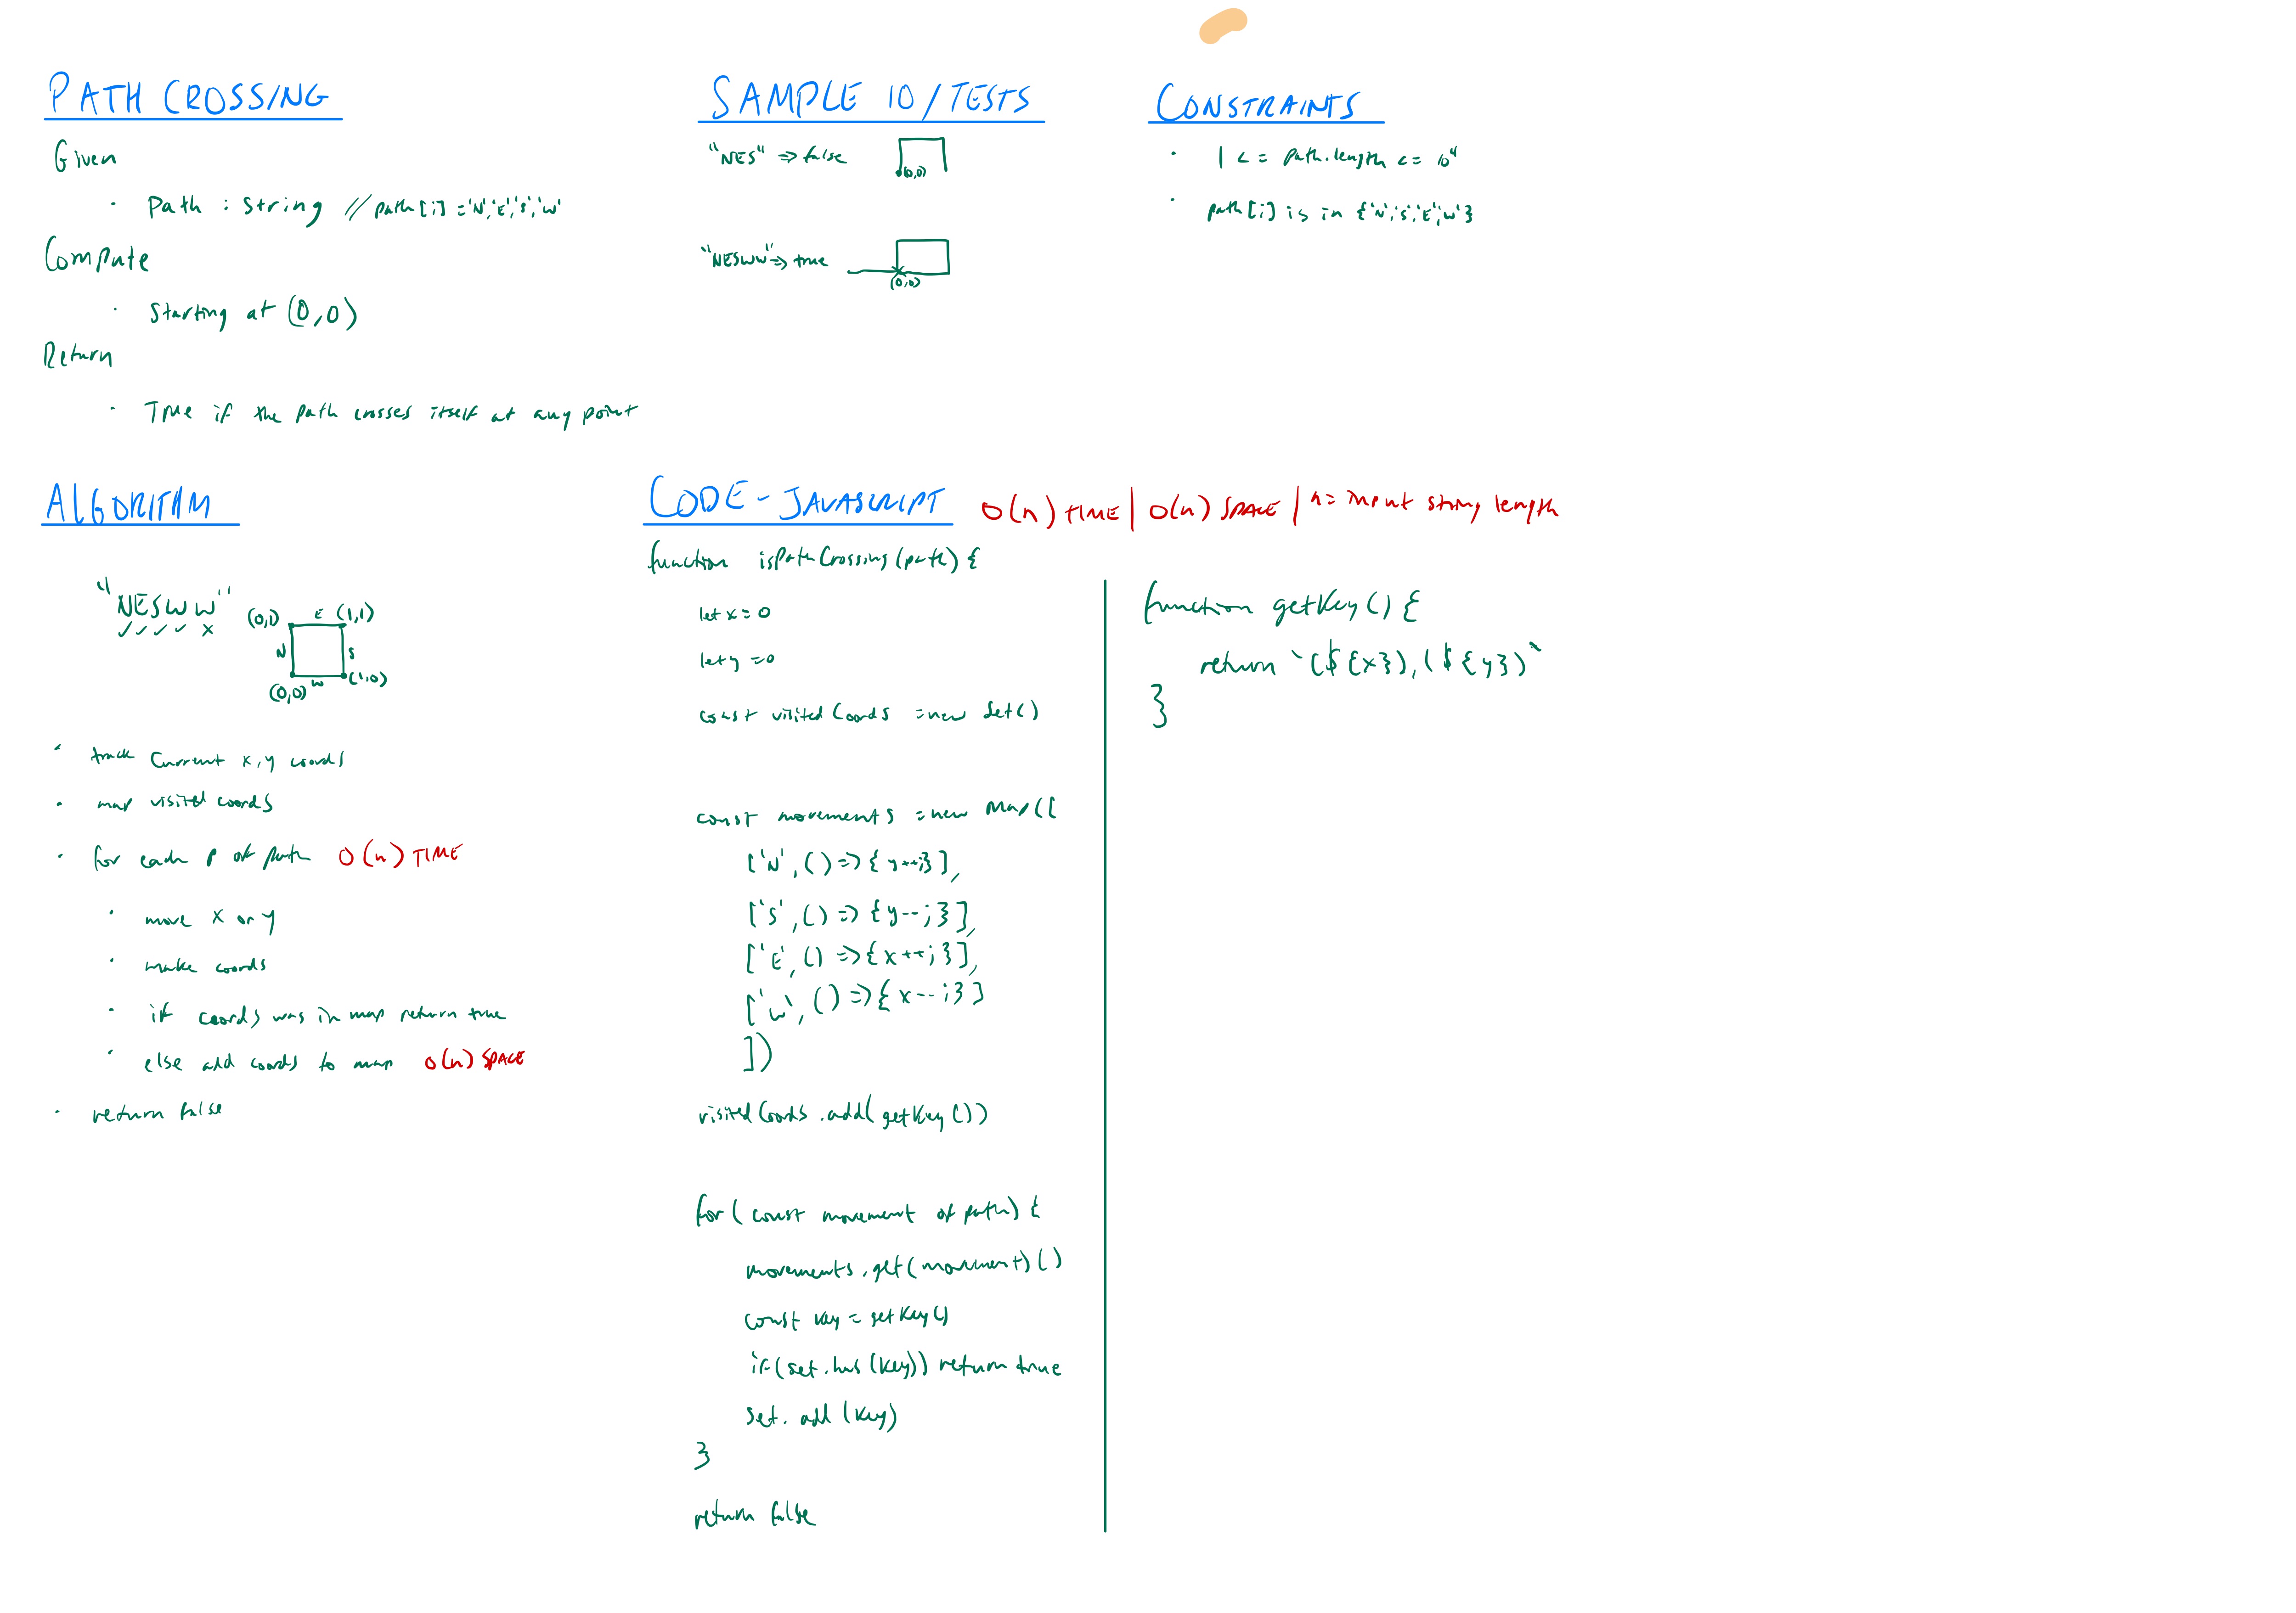 PATH CROSSING
Given
· Path : string // path[i] = 'N','E','S','W'
Compute
· Starting at (0,0)
Return
· True if the path crosses itself at any point
SAMPLE IO/TESTS
"NES" => false
(0,0)
"NESWW" => true
(0,0)
CONSTRAINTS
· 1 <= path.length <= 10⁴
· path[i] is in {'N','S','E','W'}
ALGORITHM
"NESWW"
✓✓✓✓x
(0,1) E (1,1)
N S
(0,0) W (1,0)
· track current x,y coords
· map visited coords
· for each p of path O(n) TIME
· move x or y
· make coords
· if coords was in map return true
· else add coords to map O(n) SPACE
· return false
CODE - JAVASCRIPT O(n) TIME | O(n) SPACE | n = input string length
function isPathCrossing(path) {
let x = 0
let y = 0
const visitedCoords = new Set()
const movements = new Map([
['N', () => { y++; }],
['S', () => { y--; }],
['E', () => { x++; }],
['W', () => { x--; }]
])
visitedCoords.add(getKey())
for (const movement of path) {
movements.get(movement)()
const key = getKey()
if (set.has(key)) return true
set.add(key)
}
return false
function getKey() {
return `(${x}),(${y})`
}